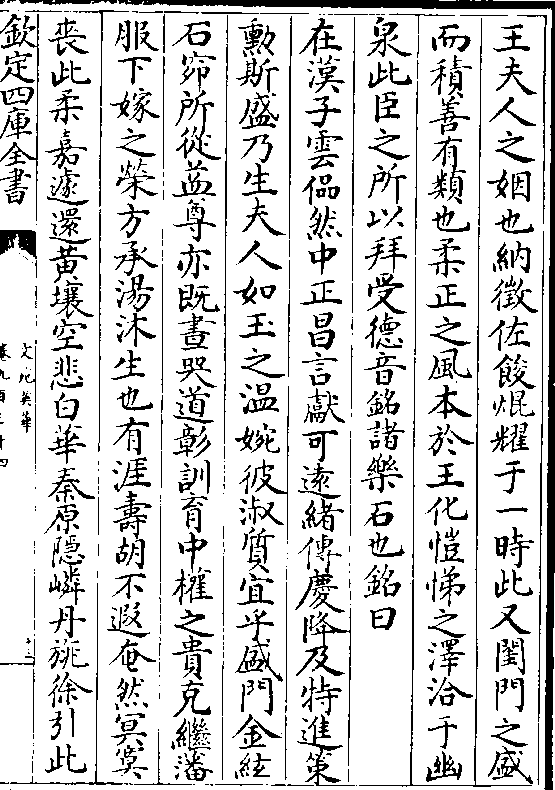 王夫人之姻也納徵佐餕焜耀于一時此又閨門之盛
而積善有類也柔正之風本於王化愷悌之澤洽于幽
泉此臣之所以拜受德音銘諸樂石也銘曰
在漢子雲偘然中正昌言獻可遠緒傳慶降及特進策
勳斯盛乃生夫人如玉之温婉彼淑質宜乎盛門金紘
石窌所從益尊亦既晝哭道彰訓育中權之貴克繼藩
服下嫁之榮方承湯沐生也有涯壽胡不遐奄然冥寞
喪此柔嘉遽還黄壤空悲白華秦原隱嶙丹旐徐引此
欽定四庫全書
文苑英華
卷九百三十四